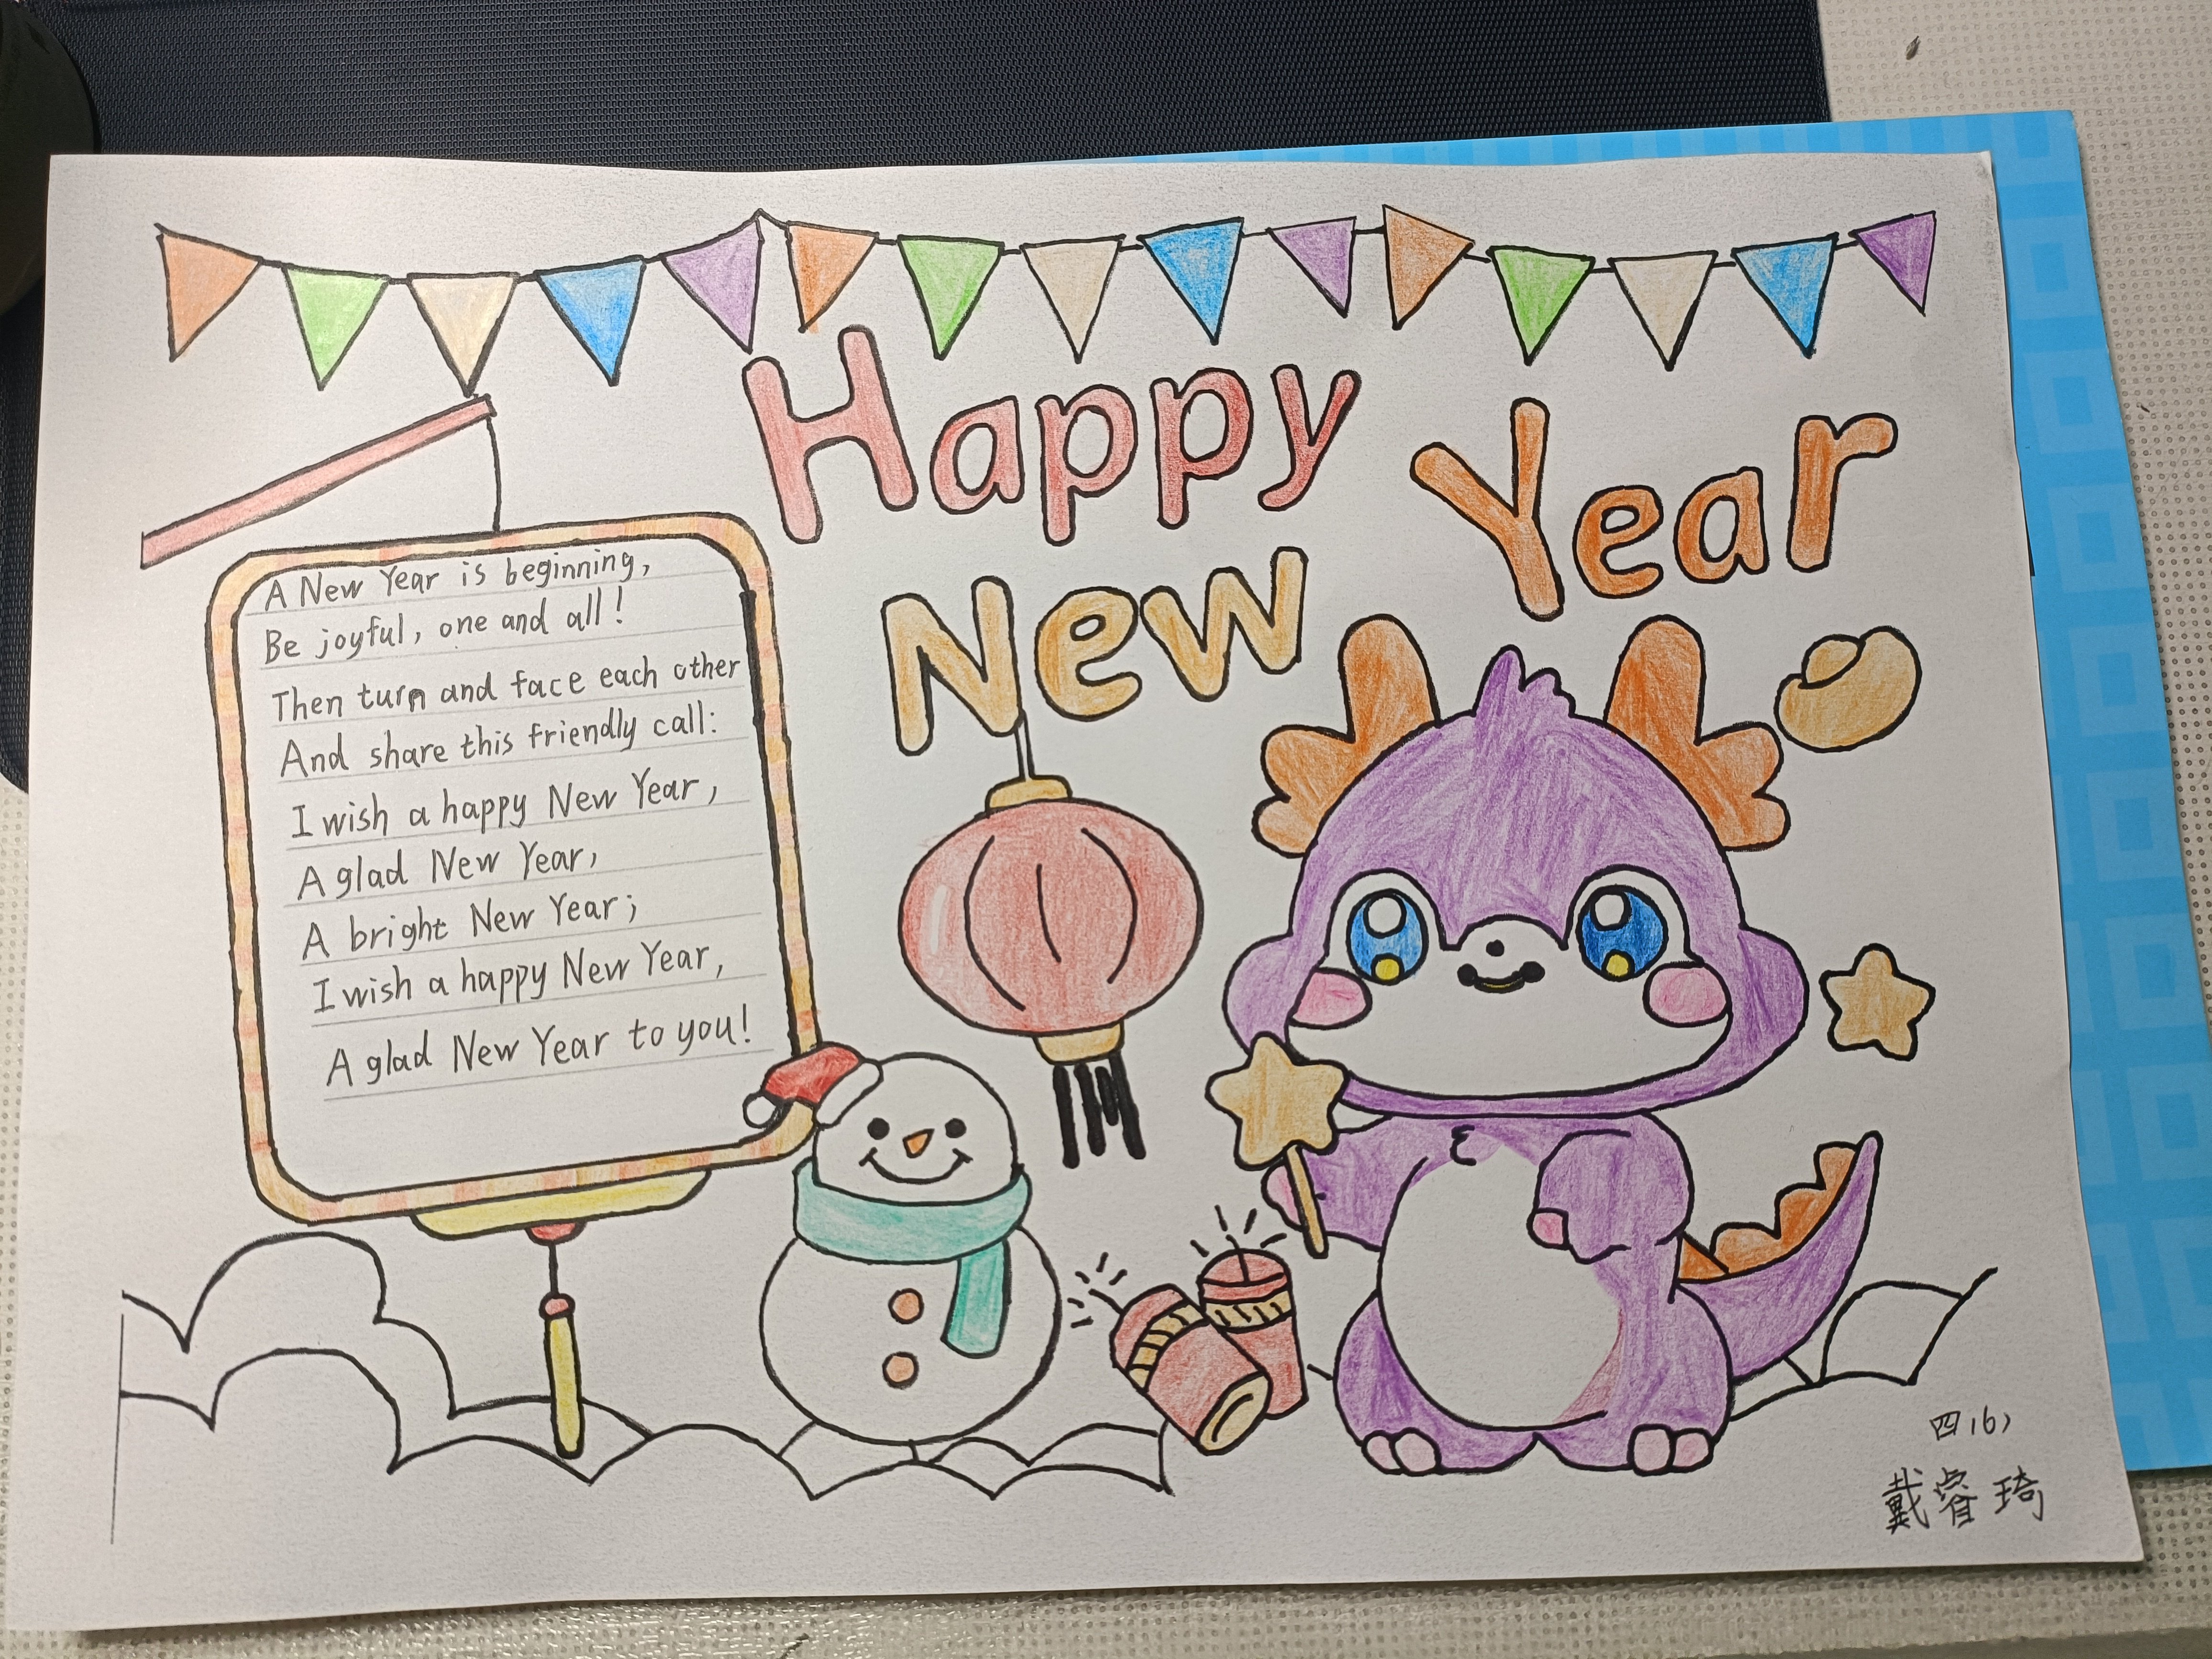 Happy
New
Year
A New Year is beginning,
Be joyful, one and all!
Then turn and face each other
And share this friendly call:
I wish a happy New Year,
A glad New Year,
A bright New Year;
I wish a happy New Year,
A glad New Year to you!
四(6)
戴睿琦